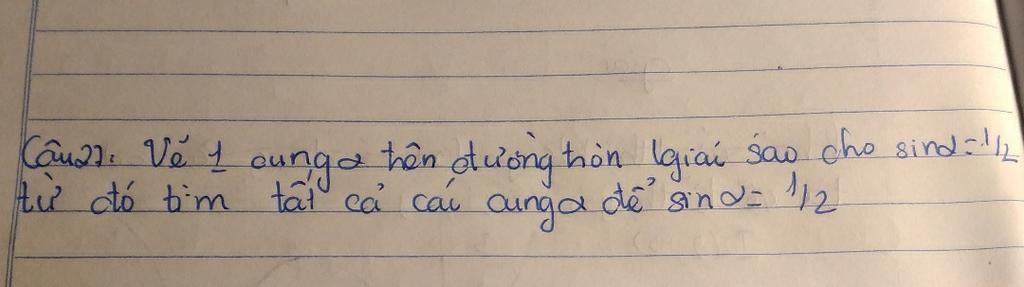 Câu 2: Vẽ 1 cung α trên đường tròn lgiác sao cho sinα = 1/2
từ đó tìm tất cả các cung α để sinα = 1/2